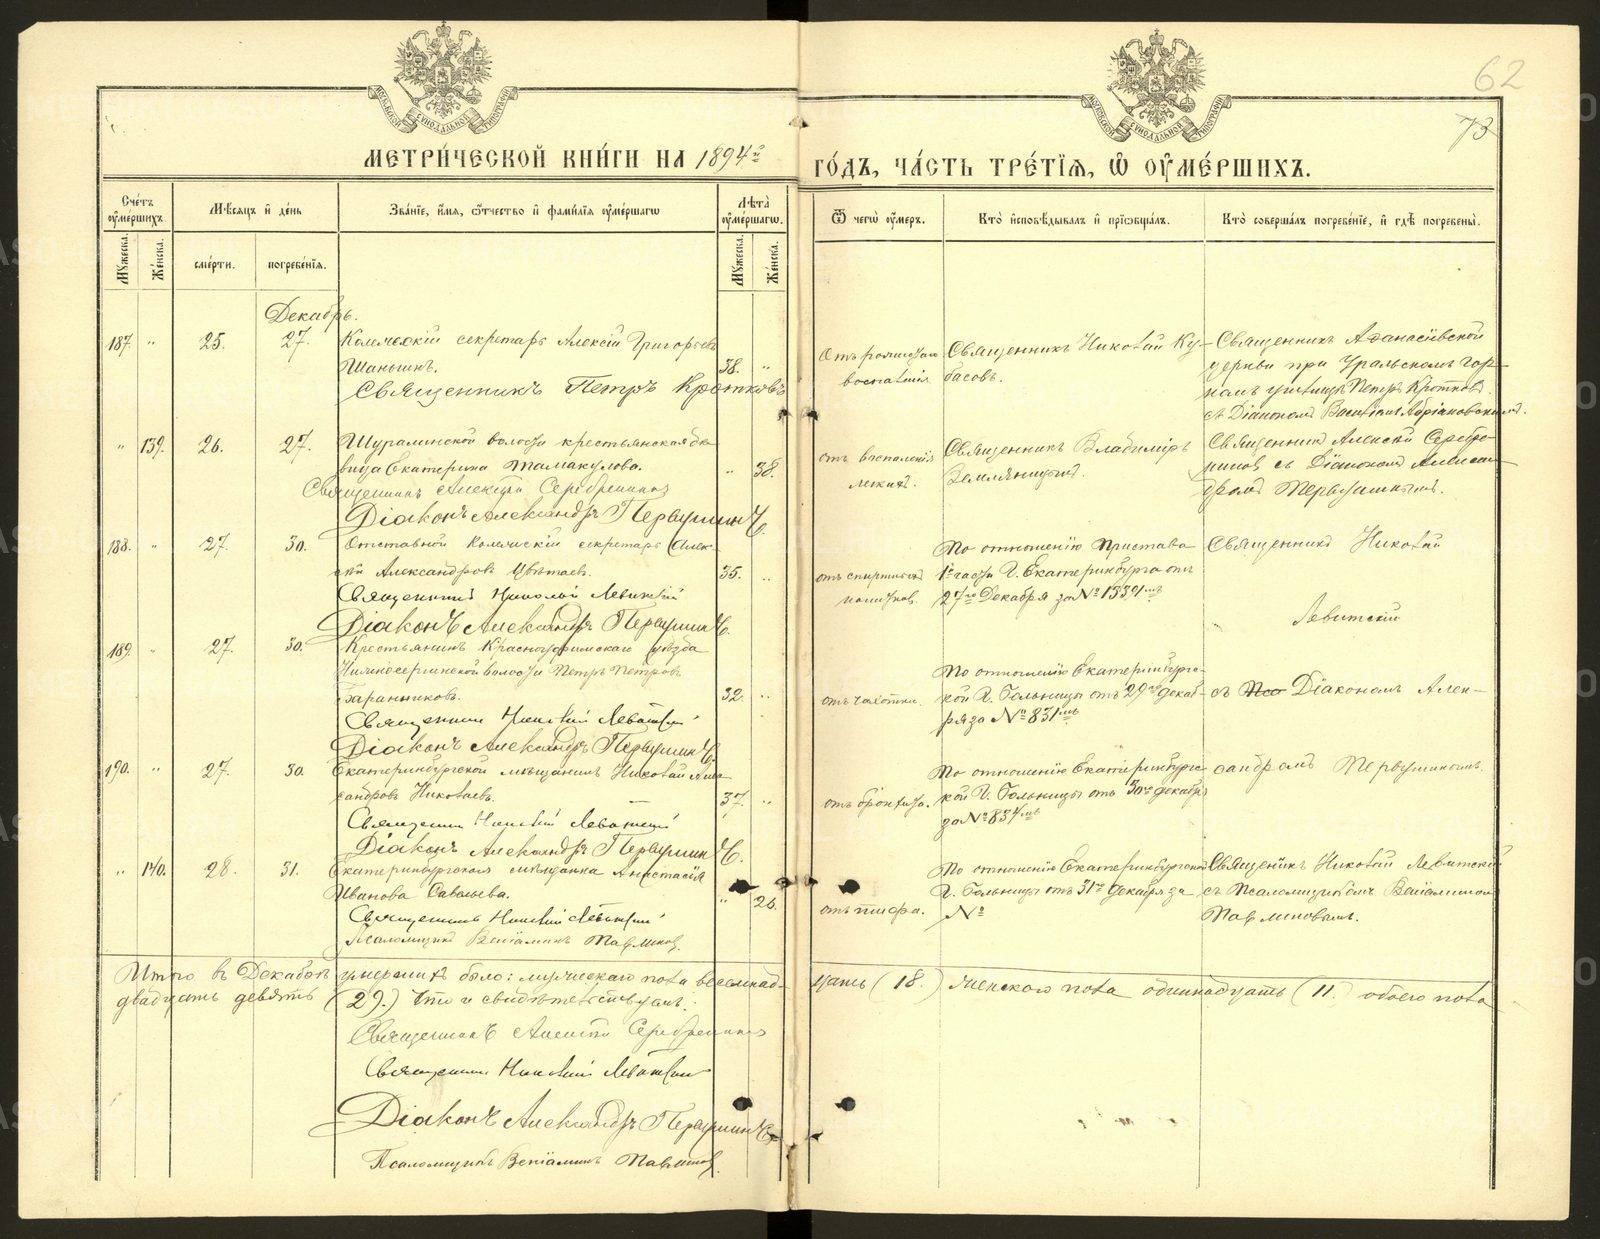 62
73
МЕТРИ́ЧЕСКОЙ КНИ́ГИ НА 1894й ГО́ДЪ, ЧА́СТЬ ТРЕ́ТІѦ, Ѡ ОУМЕ́РШИХЪ.
Сче́тъ оумершихъ.
Мѣ́сѧцъ и де́нь
Зва́нїе, и́мѧ, ѻтчество и фами́лїѧ оуме́ршагѡ
Лѣ́та оуме́ршагѡ.
Ѿ чегѡ̀ оу́меръ.
Кто̀ исповѣ́дывалъ и прїѡбща́лъ.
Кто̀ соверша́лъ погребе́нїе, и гдѣ̀ погребены̀.
Мужеска.
Же́нска.
сме́рти.
погребе́нїѧ.
Мужеска.
Же́нска.
Декабрь.
187. " 25. 27. Коллежскій секретарь Алексій Григорьевъ
Шаньгинъ. 38. "
Священникъ Петръ Кротковъ
Священникъ Николай Ку-
басовъ.
Священникъ Аѳанасіевской
церкви при Уральскомъ Гор-
номъ училищѣ Петръ Кротковъ
съ Діакономъ
" 139. 26. 27. Шуралинской волости крестьянская дѣ-
вица Екатерина Тамакулова. " 38.
Священникъ Алексій Серебренниковъ
Діаконъ Александръ Первушинъ.
отъ воспаленія
легкихъ.
Священникъ Владиміръ
Земляницынъ.
Священникъ Алексій Серебре-
никовъ съ Діакономъ Алексан-
дромъ Первушинымъ.
188. " 27. 30. Отставной Коллежскій секретарь Алек-
сѣй Александровъ Цвѣтаевъ. 35. "
Священникъ Николай Левитскій
Діаконъ Александръ Первушинъ.
отъ спиртныхъ
напитковъ.
По отношенію Пристава
1й части Г. Екатеринбурга отъ
27го Декабря за №
Священникъ Николай
Левитскій
189. " 27. 30. Крестьянинъ Красноуфимскаго уѣзда
Нижнесергинской волости Петръ Петровъ
Баранниковъ. 32. "
Священникъ Николай Левитскій
Діаконъ Александръ Первушинъ.
отъ чахотки.
По отношенію Екатеринбургс-
кой Г. Больницы отъ 29го декаб-
ря за № 831мъ
съ Діакономъ Алек-
190. " 27. 30. Екатеринбургской мѣщанинъ Николай Алек-
сандровъ Николаевъ. 37. "
Священникъ Николай Левитскій
Діаконъ Александръ Первушинъ.
отъ бронхита.
По отношенію Екатеринбургс-
кой Г. Больницы отъ 30го декабря
за № 834мъ
сандромъ Первушинымъ.
" 140. 28. 31. Екатеринбургская мѣщанка Анастасія
Иванова Савельева. " 26.
Священникъ Николай Левитскій
Псаломщикъ Веніаминъ Павлиновъ.
отъ тифа.
По отношенію Екатеринбургской
Г. Больницы отъ 31го декабря за
№
Священникъ Николай Левитскій
съ Псаломщикомъ Веніаминомъ
Павлиновымъ.
Итого въ Декабрѣ умершихъ было: мужескаго пола восемнад-цать (18.) женскаго пола одиннадцать (11.) обоего пола
двадцать девять (29.) Что и свидѣтельствуемъ:
Священникъ Алексій Серебренниковъ
Священникъ Николай Левитскій
Діаконъ Александръ Первушинъ.
Псаломщикъ Веніаминъ Павлиновъ.